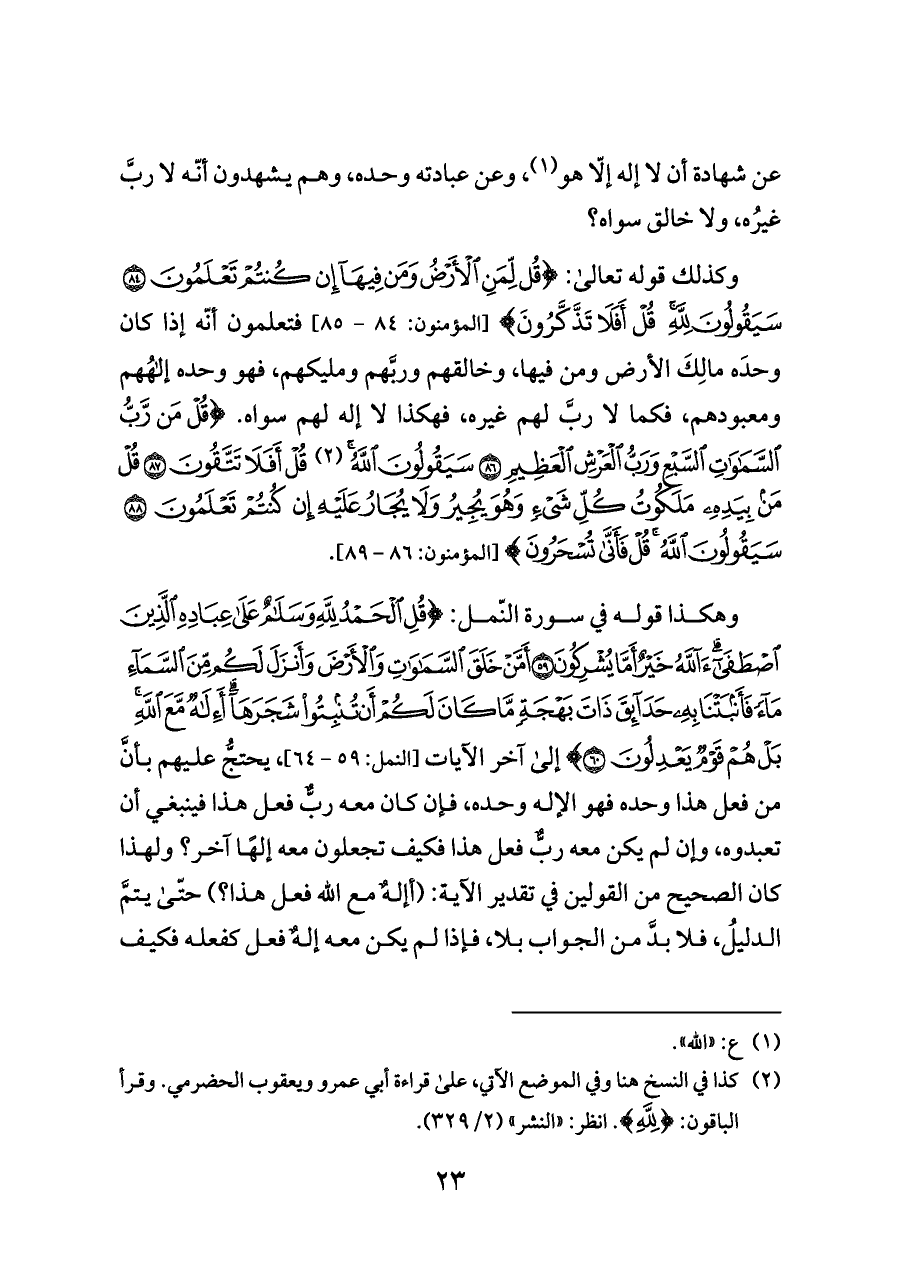 عن شهادة أن لا إله إلّا هو(١)، وعن عبادته وحده، وهم يشهدون أنّه لا ربَّ
غيرُه، ولا خالق سواه؟
وكذلك قوله تعالىٰ: ﴿قُل لِّمَنِ ٱلْأَرْضُ وَمَن فِيهَآ إِن كُنتُمْ تَعْلَمُونَ ٨٤
سَيَقُولُونَ لِلَّهِۚ قُلْ أَفَلَا تَذَكَّرُونَ﴾ [المؤمنون: ٨٤ - ٨٥] فتعلمون أنّه إذا كان
وحدَه مالِكَ الأرض ومن فيها، وخالقهم وربَّهم ومليكهم، فهو وحده إلٰهُهم
ومعبودهم، فكما لا ربَّ لهم غيره، فهكذا لا إله لهم سواه. ﴿قُلْ مَن رَّبُّ
ٱلسَّمَٰوَٰتِ ٱلسَّبْعِ وَرَبُّ ٱلْعَرْشِ ٱلْعَظِيمِ ٨٦ سَيَقُولُونَ ٱللَّهُۚ (٢) قُلْ أَفَلَا تَتَّقُونَ ٨٧ قُلْ
مَنۢ بِيَدِهِۦ مَلَكُوتُ كُلِّ شَىْءٍ وَهُوَ يُجِيرُ وَلَا يُجَارُ عَلَيْهِ إِن كُنتُمْ تَعْلَمُونَ ٨٨
سَيَقُولُونَ ٱللَّهُۚ قُلْ فَأَنَّىٰ تُسْحَرُونَ﴾ [المؤمنون: ٨٦ - ٨٩].
وهكذا قوله في سورة النّمل: ﴿قُلِ ٱلْحَمْدُ لِلَّهِ وَسَلَٰمٌ عَلَىٰ عِبَادِهِ ٱلَّذِينَ
ٱصْطَفَىٰٓۗ ءَآللَّهُ خَيْرٌ أَمَّا يُشْرِكُونَ ٥٩ أَمَّنْ خَلَقَ ٱلسَّمَٰوَٰتِ وَٱلْأَرْضَ وَأَنزَلَ لَكُم مِّنَ ٱلسَّمَآءِ
مَآءً فَأَنۢبَتْنَا بِهِۦ حَدَآئِقَ ذَاتَ بَهْجَةٍ مَّا كَانَ لَكُمْ أَن تُنۢبِتُوا۟ شَجَرَهَآۗ أَءِلَٰهٌ مَّعَ ٱللَّهِۚ
بَلْ هُمْ قَوْمٌ يَعْدِلُونَ ٦٠﴾ إلىٰ آخر الآيات [النمل: ٥٩ - ٦٤]، يحتجُّ عليهم بأنَّ
من فعل هذا وحده فهو الإله وحده، فإن كان معه ربٌّ فعل هذا فينبغي أن
تعبدوه، وإن لم يكن معه ربٌّ فعل هذا فكيف تجعلون معه إلهًا آخر؟ ولهذا
كان الصحيح من القولين في تقدير الآية: (أإلهٌ مع الله فعل هذا؟) حتّىٰ يتمَّ
الدليلُ، فلا بدَّ من الجواب بلا، فإذا لم يكن معه إلهٌ فعل كفعله فكيف
(١) ع: «الله».
(٢) كذا في النسخ هنا وفي الموضع الآتي، علىٰ قراءة أبي عمرو ويعقوب الحضرمي. وقرأ
الباقون: ﴿لِلَّهِ﴾. انظر: «النشر» (٢/ ٣٢٩).
٢٣